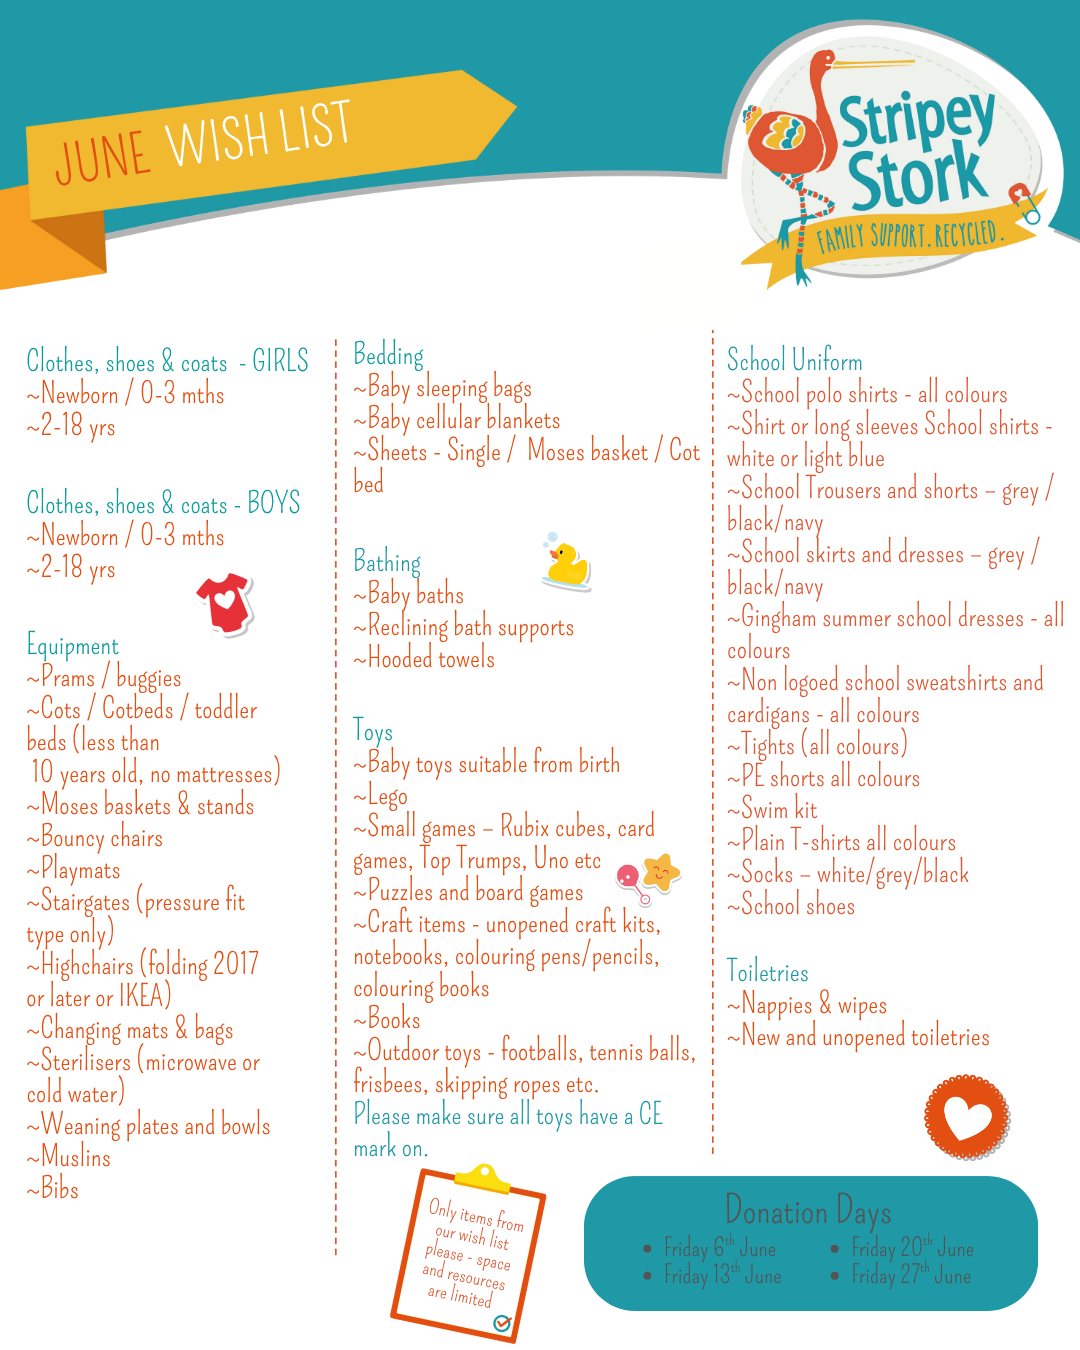 JUNE WISH LIST
Stripey
Stork
FAMILY SUPPORT. RECYCLED.
Clothes, shoes & coats - GIRLS
~Newborn / 0-3 mths
~2-18 yrs
Clothes, shoes & coats - BOYS
~Newborn / 0-3 mths
~2-18 yrs
Equipment
~Prams / buggies
~Cots / Cotbeds / toddler
beds (less than
10 years old, no mattresses)
~Moses baskets & stands
~Bouncy chairs
~Playmats
~Stairgates (pressure fit
type only)
~Highchairs (folding 2017
or later or IKEA)
~Changing mats & bags
~Sterilisers (microwave or
cold water)
~Weaning plates and bowls
~Muslins
~Bibs
Bedding
~Baby sleeping bags
~Baby cellular blankets
~Sheets - Single / Moses basket / Cot
bed
Bathing
~Baby baths
~Reclining bath supports
~Hooded towels
Toys
~Baby toys suitable from birth
~Lego
~Small games – Rubix cubes, card
games, Top Trumps, Uno etc
~Puzzles and board games
~Craft items - unopened craft kits,
notebooks, colouring pens/pencils,
colouring books
~Books
~Outdoor toys - footballs, tennis balls,
frisbees, skipping ropes etc.
Please make sure all toys have a CE
mark on.
Only items from
our wish list
please - space
and resources
are limited
School Uniform
~School polo shirts - all colours
~Shirt or long sleeves School shirts -
white or light blue
~School Trousers and shorts – grey /
black/navy
~School skirts and dresses – grey /
black/navy
~Gingham summer school dresses - all
colours
~Non logoed school sweatshirts and
cardigans - all colours
~Tights (all colours)
~PE shorts all colours
~Swim kit
~Plain T-shirts all colours
~Socks – white/grey/black
~School shoes
Toiletries
~Nappies & wipes
~New and unopened toiletries
Donation Days
• Friday 6th June
• Friday 13th June
• Friday 20th June
• Friday 27th June